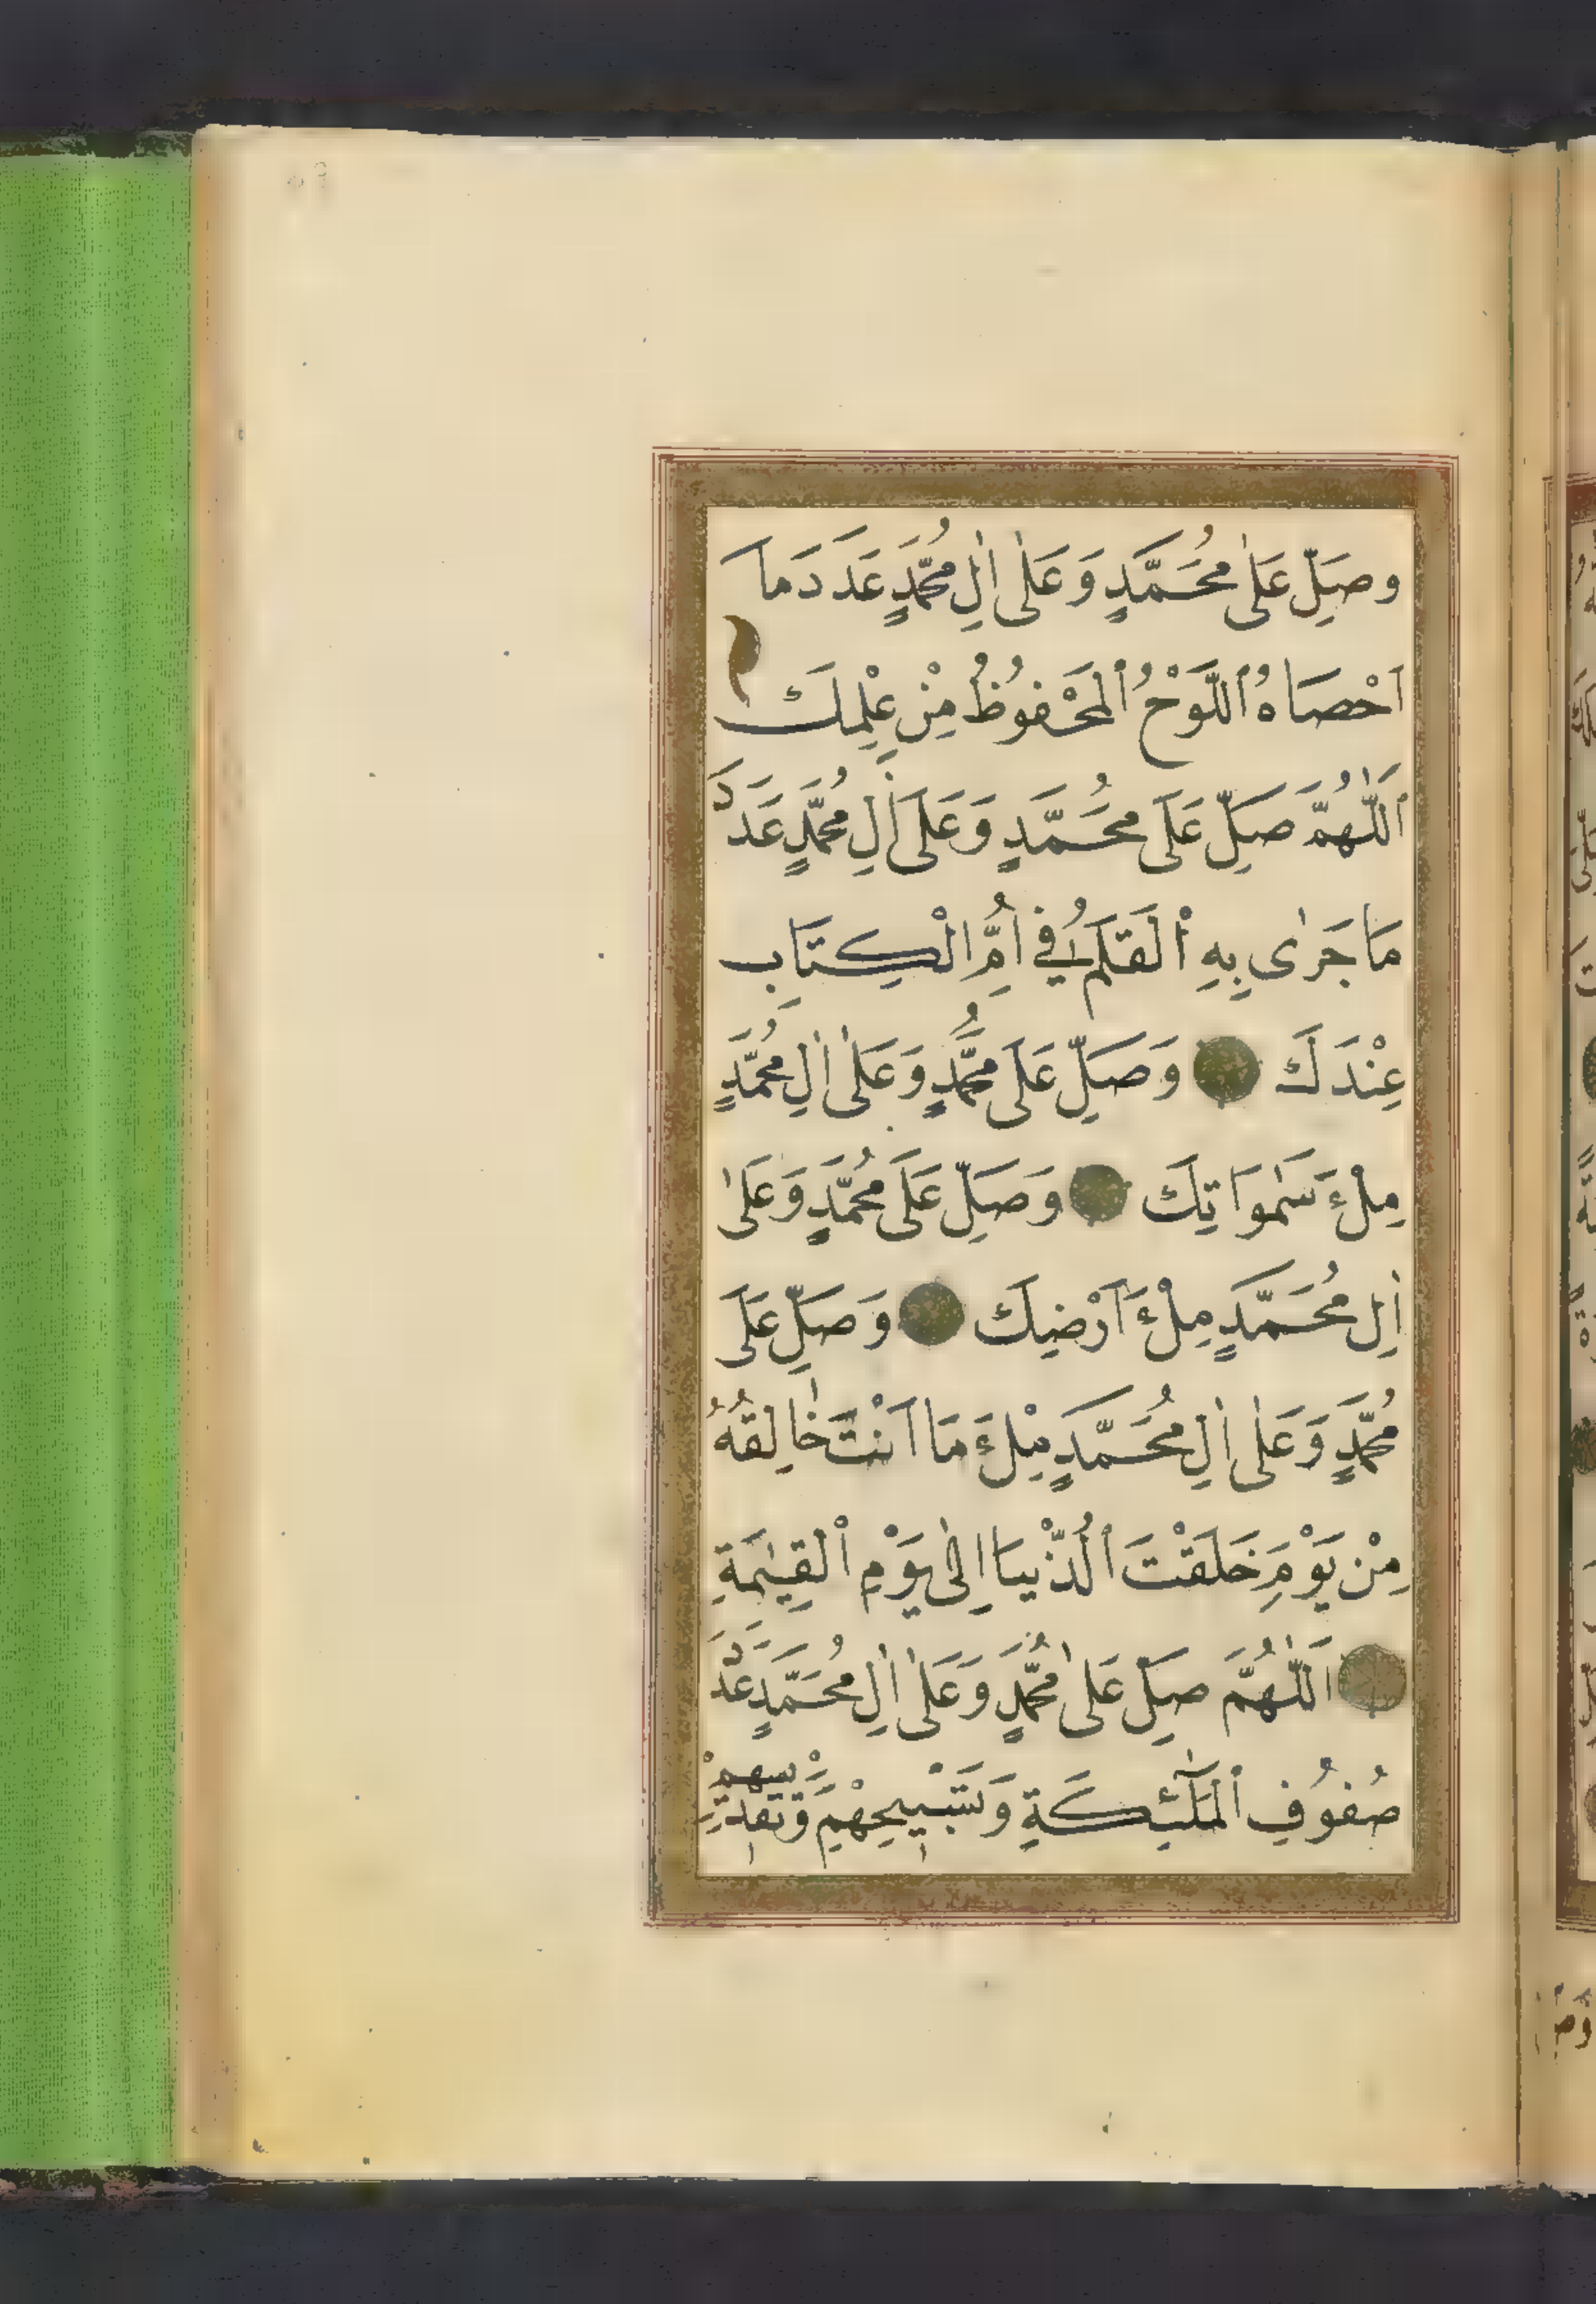 وصَلِّ عَلٰى مُحَمَّدٍ وَعَلٰى اٰلِ مُحَمَّدٍ عَدَدَ مَا
اَحْصَاهُ ٱللَّوْحُ ٱلْمَحْفُوظُ مِنْ عِلْمِكَ
اَللّٰهُمَّ صَلِّ عَلَى مُحَمَّدٍ وَعَلَى اٰلِ مُحَمَّدٍ عَدَدَ
مَا جَرٰى بِهِ ٱلْقَلَمُ فِي اُمِّ الْكِتَابِ
عِنْدَكَ وَصَلِّ عَلَى مُحَمَّدٍ وَعَلٰى اٰلِ مُحَمَّدٍ
مِلْءَ سَمٰوَاتِكَ وَصَلِّ عَلَى مُحَمَّدٍ وَعَلٰى
اٰلِ مُحَمَّدٍ مِلْءَ اَرْضِكَ وَصَلِّ عَلَى
مُحَمَّدٍ وَعَلٰى اٰلِ مُحَمَّدٍ مِلْءَ مَا اَنْتَ خَالِقُهُ
مِنْ يَوْمِ خَلَقْتَ ٱلدُّنْيَا اِلٰى يَوْمِ ٱلْقِيٰمَةِ
اَللّٰهُمَّ صَلِّ عَلٰى مُحَمَّدٍ وَعَلٰى اٰلِ مُحَمَّدٍ عَدَدَ
صُفُوُفِ ٱلْمَلٰٓئِكَةِ وَتَسْبِيحِهِمْ وَتَقْدِيسِهِمْ